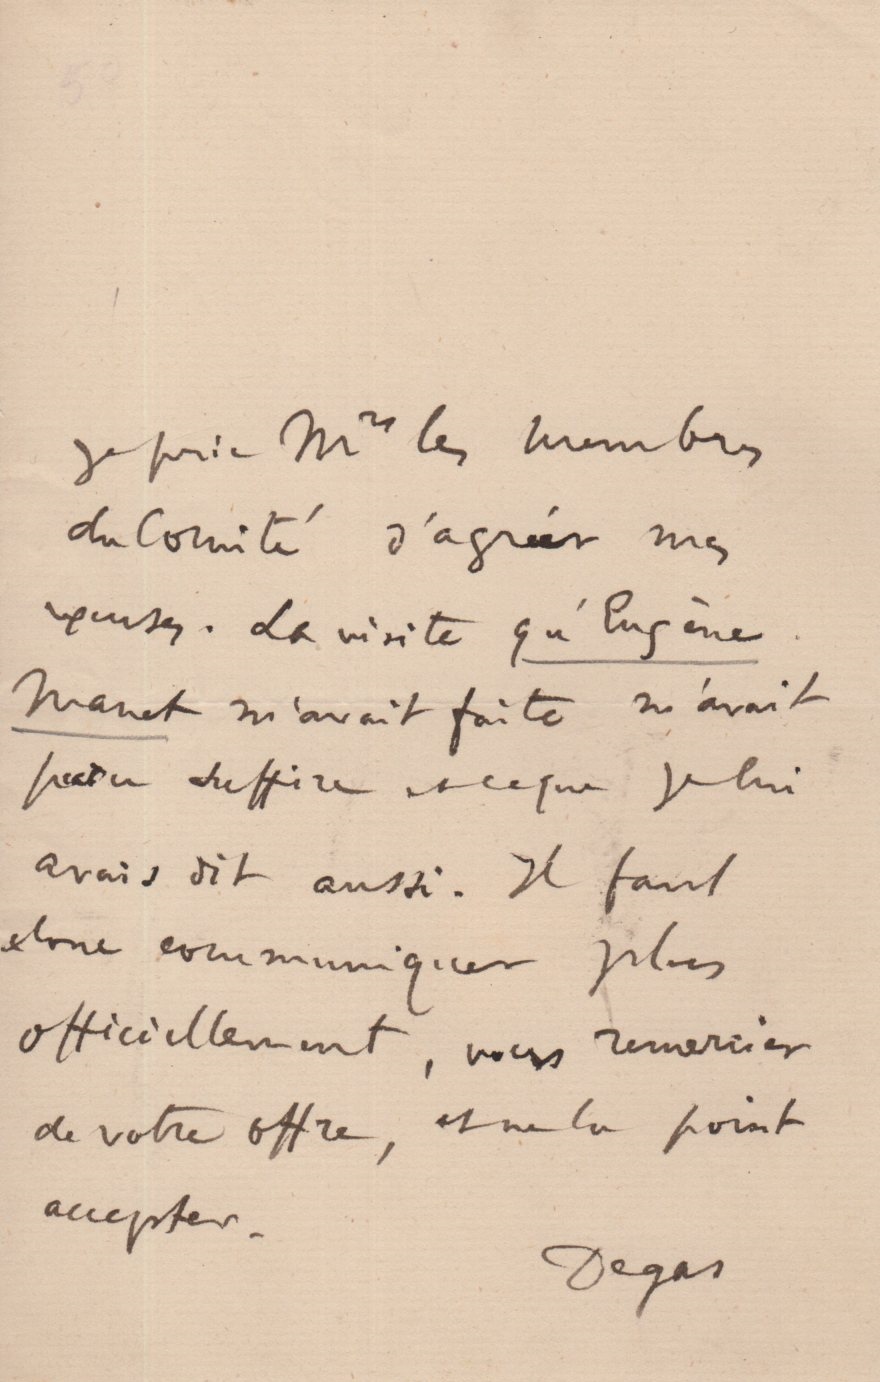 50
Je prie Mrs les membres
du Comité d'agréer mes
excuses. La visite qu'Eugène
Manet m'avait faite m'avait
paru suffire et ce que je lui
avais dit aussi. Il faut
donc communiquer plus
officiellement, vous remercier
de votre offre, et ne la point
accepter.
Degas